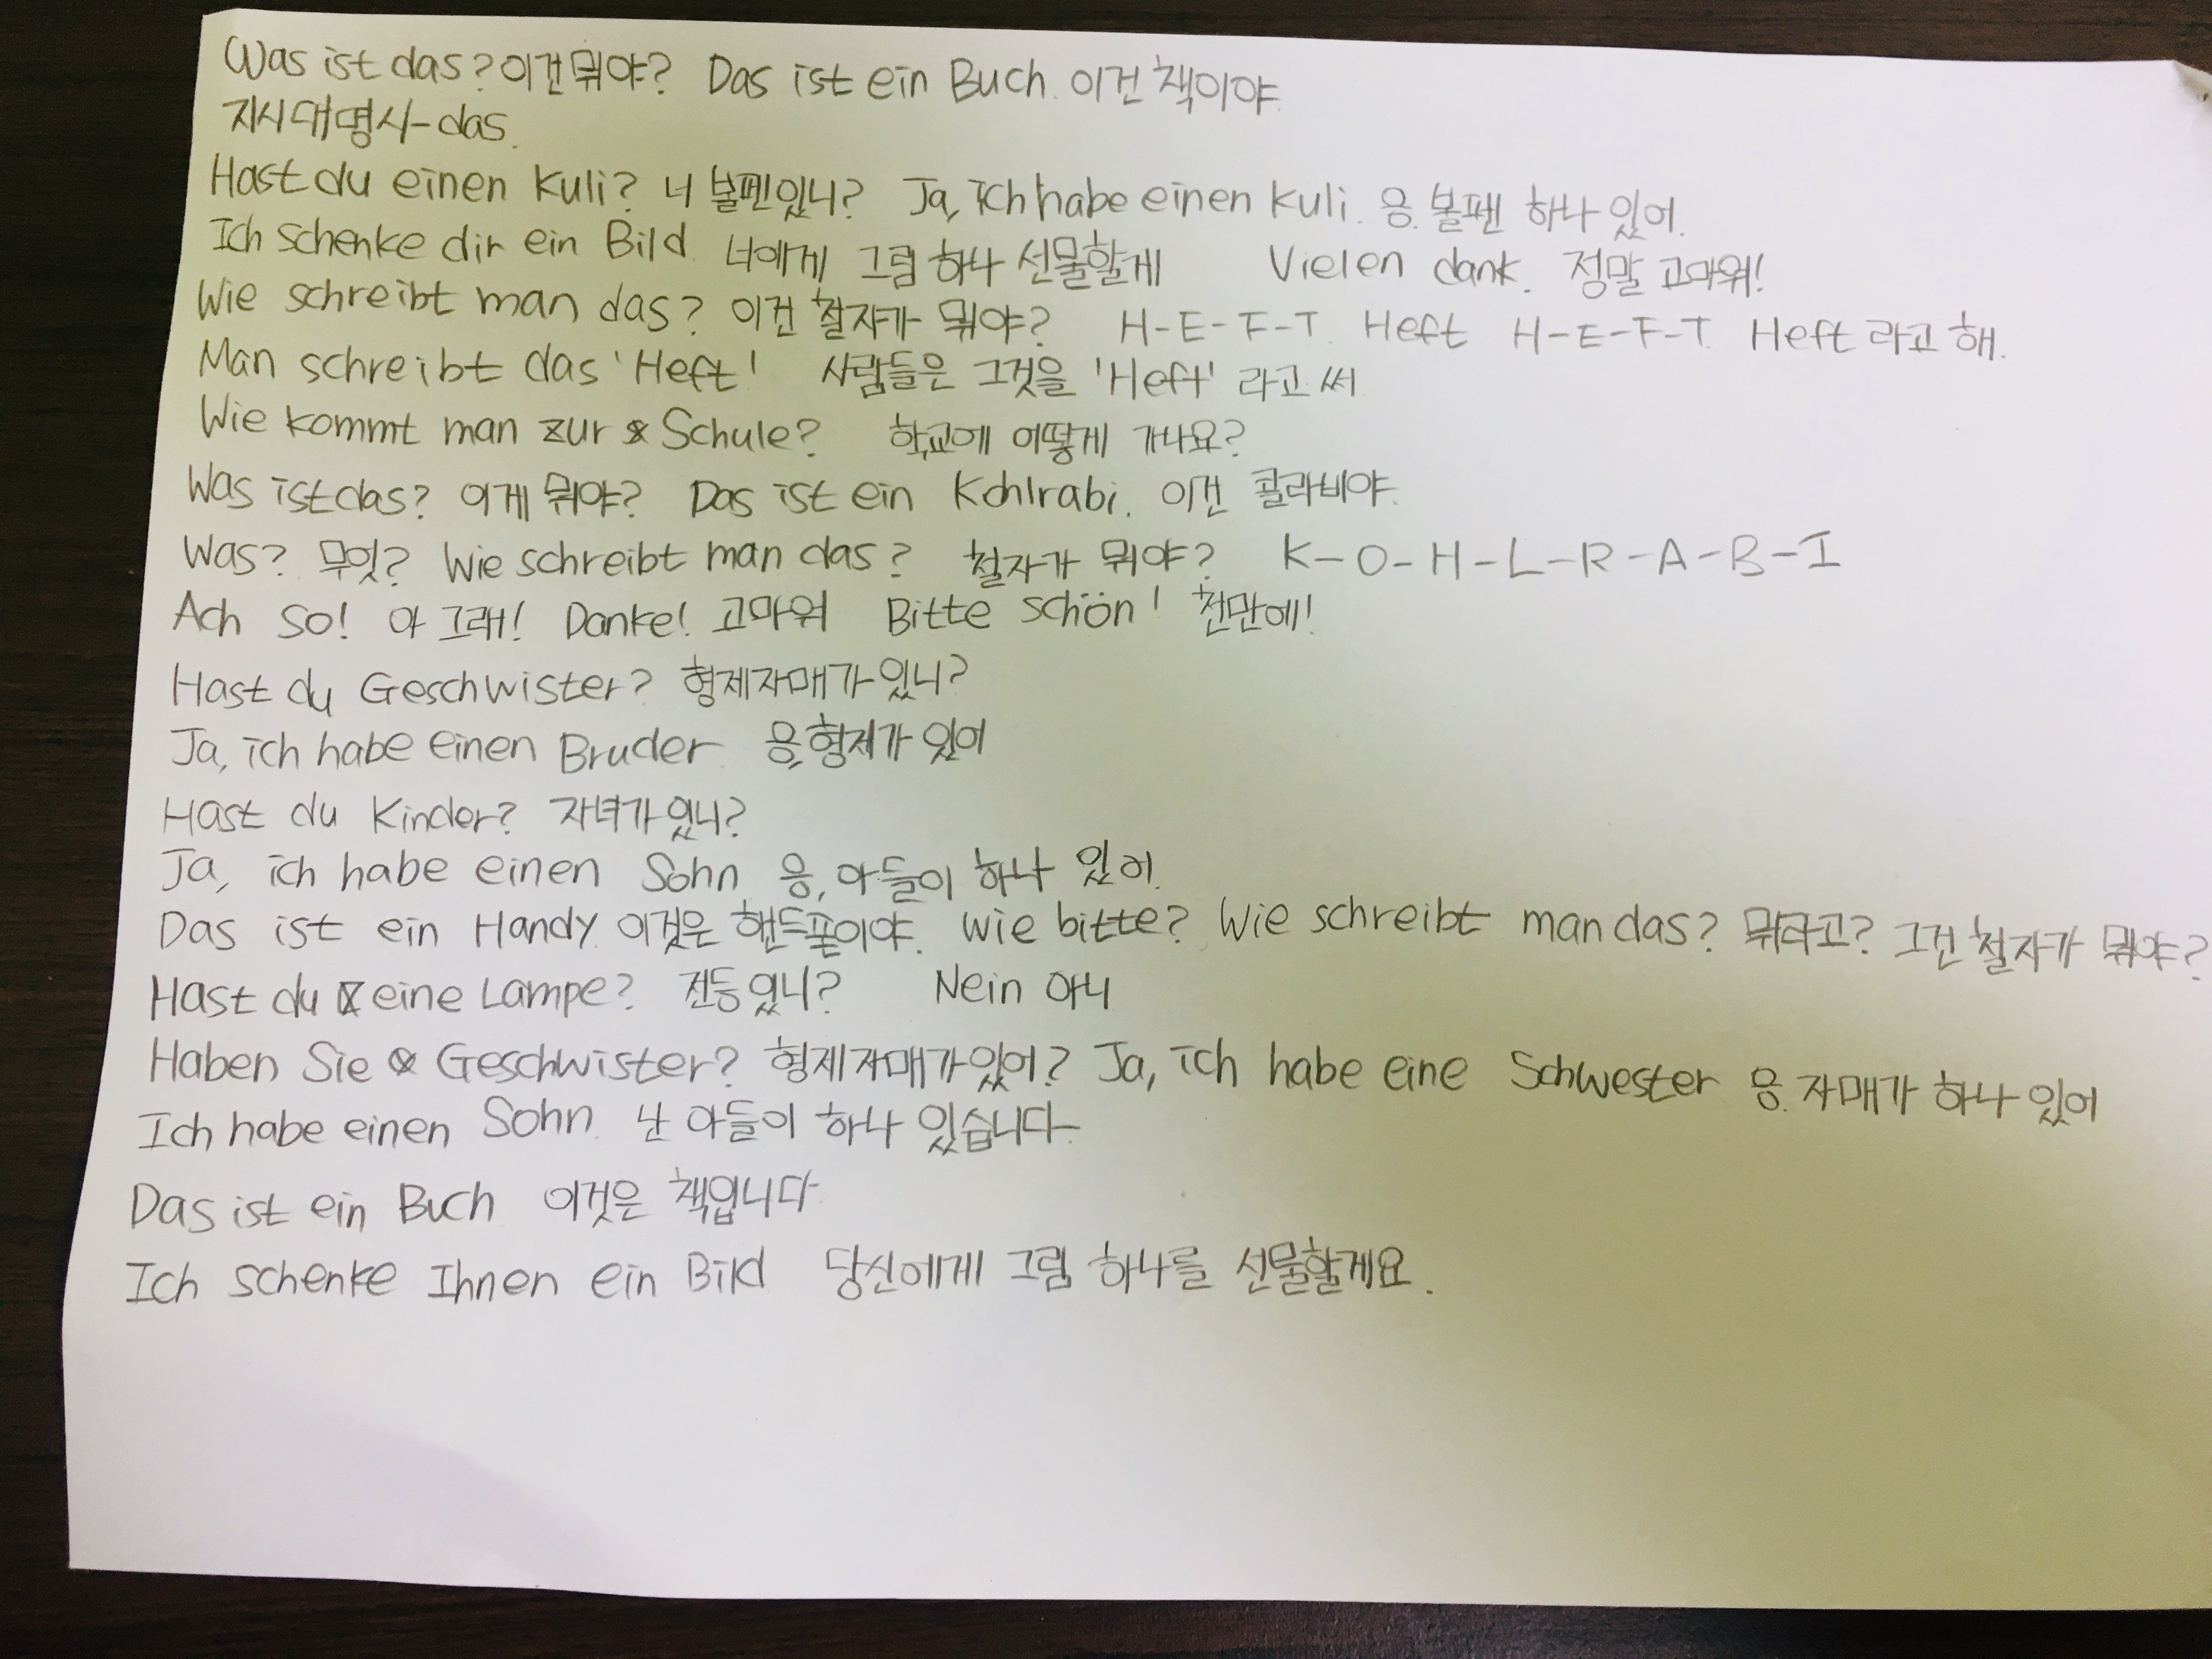 Was ist das? 이건 뭐야? Das ist ein Buch. 이건 책이야.
지시대명사-das.
Hast du einen Kuli? 너 볼펜있니? Ja, ich habe einen Kuli. 응. 볼펜 하나 있어.
Ich schenke dir ein Bild. 너에게 그림 하나 선물할게 Vielen dank. 정말 고마워!
Wie schreibt man das? 이건 철자가 뭐야? H-E-F-T. Heft H-E-F-T. Heft 라고 해.
Man schreibt das 'Heft' 사람들은 그것을 'Heft' 라고 써
Wie kommt man zur Schule? 학교에 어떻게 가나요?
Was ist das? 이게 뭐야? Das ist ein Kohlrabi. 이건 콜라비야.
Was? 무엇? Wie schreibt man das? 철자가 뭐야? K-O-H-L-R-A-B-I
Ach so! 아 그래! Danke! 고마워 Bitte schön! 천만에!
Hast du Geschwister? 형제자매가있니?
Ja, ich habe einen Bruder. 응, 형제가 있어
Hast du Kinder? 자녀가 있니?
Ja, ich habe einen Sohn. 응, 아들이 하나 있어.
Das ist ein Handy. 이것은 핸드폰이야. Wie bitte? Wie schreibt man das? 뭐라고? 그건 철자가 뭐야?
Hast du eine Lampe? 전등있니? Nein 아니
Haben Sie Geschwister? 형제자매가있어? Ja, ich habe eine Schwester 응. 자매가 하나 있어
Ich habe einen Sohn. 난 아들이 하나 있습니다.
Das ist ein Buch 이것은 책입니다
Ich schenke Ihnen ein Bild 당신에게 그림 하나를 선물할게요.